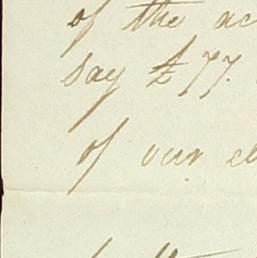 of the ac
say £77.
of our el